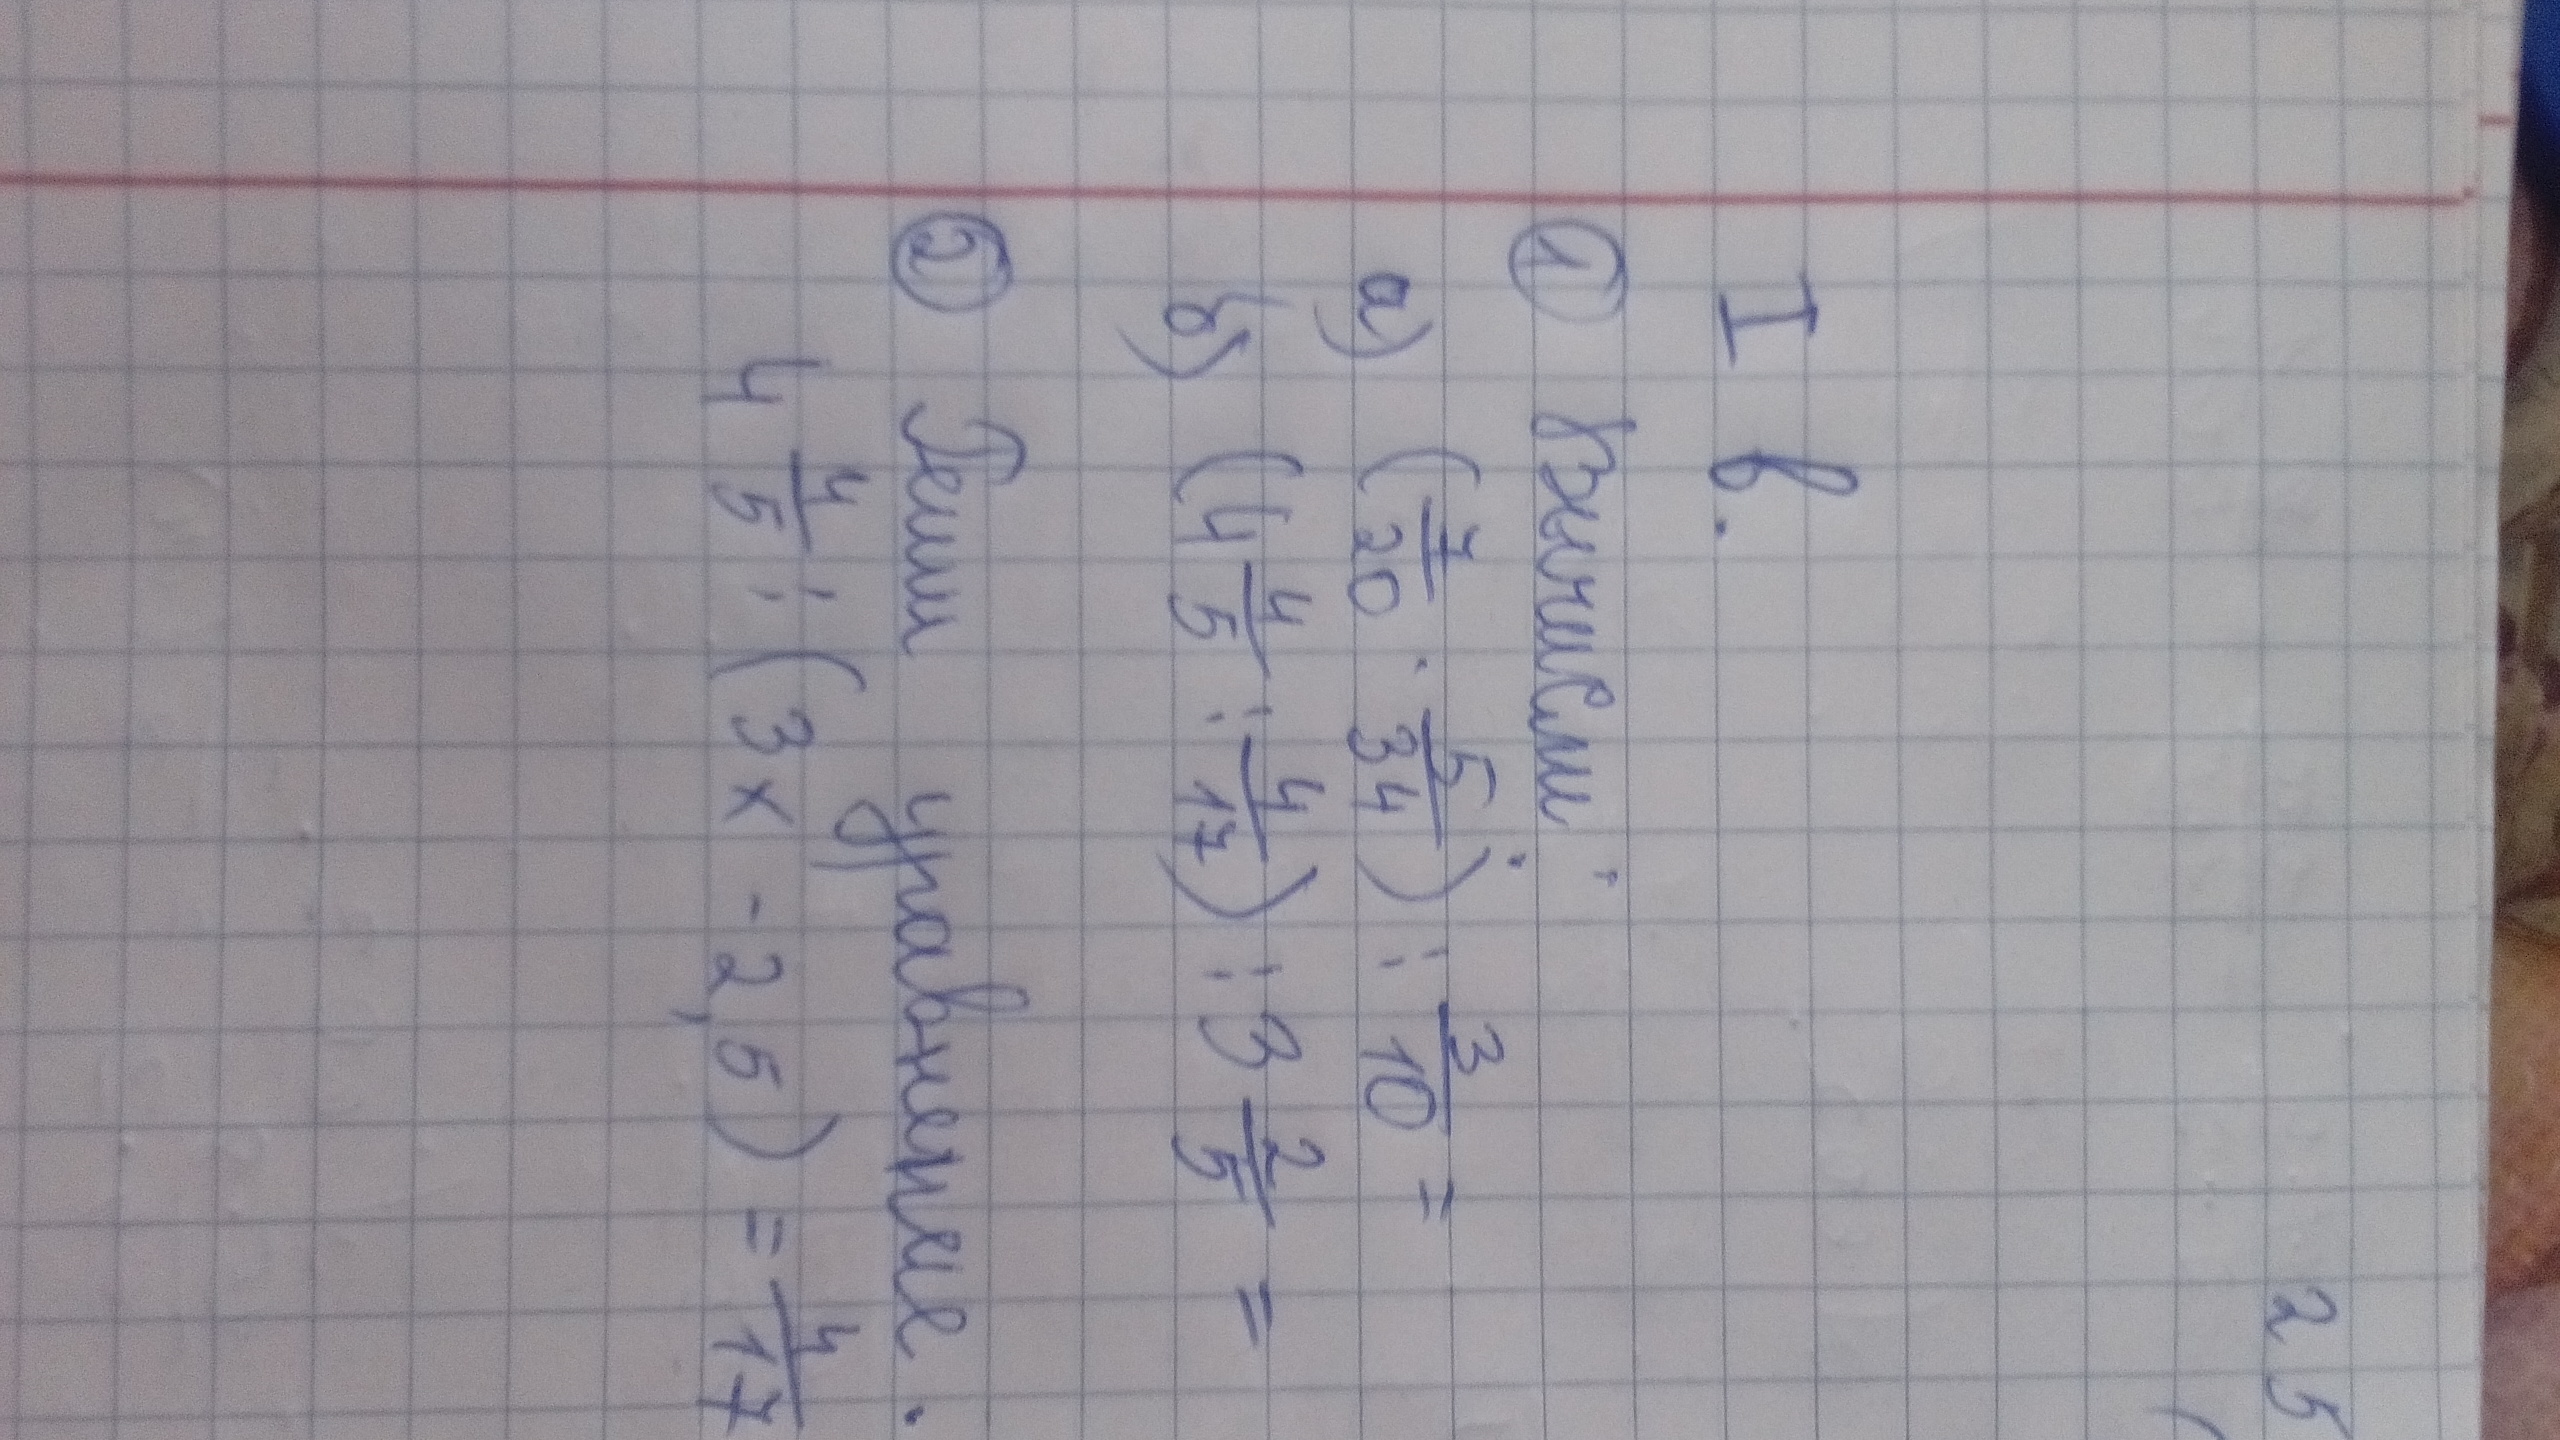 25
I в.
① Вычисли:
а) (7/20 · 5/34) : 3/10 =
б) (4 4/5 : 4/17) : 3 2/5 =
② Реши уравнение.
4 4/5 : (3x - 2,5) = 4/17